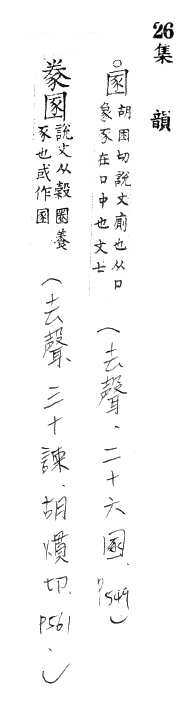 26集韻
圂胡困切說文廁也从囗
象豕在囗中也文士
(去聲、二十六圂、P549)
豢圂說文从榖圈養
豕也或作圂
(去聲、三十諫、胡慣切、P561、)